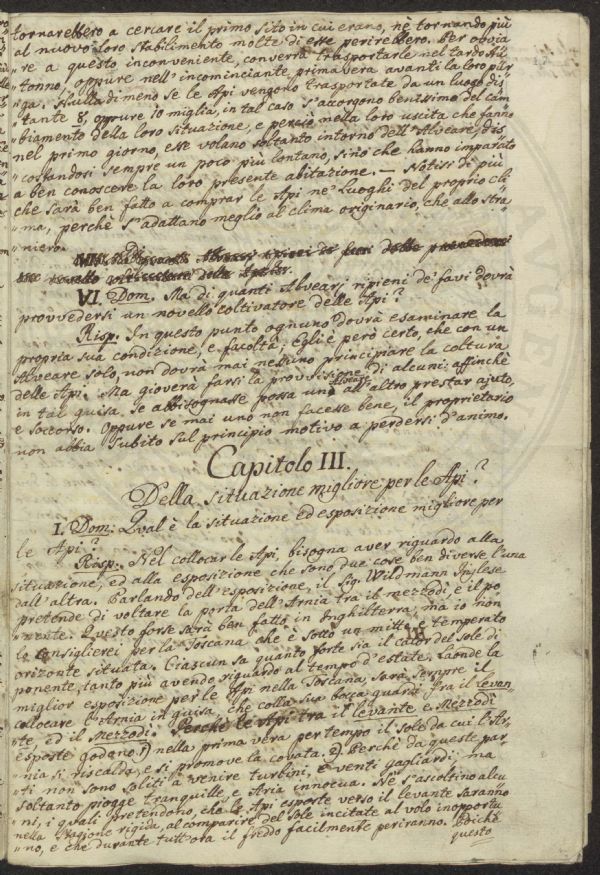 tornarebbero a cercare il primo sito in cui erano, nè tornando più
al nuovo loro stabilimento molte di esse perirebbero. Per ovvia
re a questo inconveniente, converrà trasportarle nel tardo Au
tonno, oppure nell'incominciante primavera avanti la loro pur
ga. Nulla di meno se le Api vengono trasportate da un luogo dis
tante 8, oppure 10 miglia, in tal caso s'accorgono benissimo del cam
biamento della loro situazione, e perciò nella loro uscita che fanno
nel primo giorno, esse volano soltanto intorno dell'Alveare, dis
costandosi sempre un poco più lontano, sino che hanno imparato
a ben conoscere la loro presente abitazione. — Notisi di più
che sarà ben fatto a comprar le Api ne' Luoghi del proprio cli
ma, perchè s'adattano meglio al clima originario, che allo stra
niero.
VI. Dom. Ma di quanti Alvearj ripieni de' favi dovrà
provvedersi un novello coltivatore delle Api?
Risp. In questo punto ognuno dovrà esaminare la
propria sua condizione, e facoltà; Egli è però certo, che con un
Alveare solo, non dovrà mai nessuno principiare la coltura
delle Api. Ma gioverà farsi la provvisione di alcuni: affinchè
in tal guisa, se abbisognasse possa uno Alveare all'altro prestar ajuto,
e soccorso. Oppure se mai uno non facesse bene, il proprietario
non abbia subito sul principio motivo a perdersi d'animo.
Capitolo III.
Della situazione migliore per le Api?
I. Dom: Qual è la situazione ed esposizione migliore per
le Api?
Risp. Nel collocar le Api, bisogna aver riguardo alla
situazione, ed alla esposizione che sono due cose ben diverse l'una
dall'altra. Parlando dell'esposizione, il Sig. Wildmann Inglese
pretende di voltare la porta dell'Arnia tra il mezzodì, e il po
nente. Questo forse sarà ben fatto in Inghilterra, ma io non
lo consiglierei per la Toscana che è sotto un mite e temperato
orizonte situata. Ciascun sa quanto forte sia il calor del sole di
ponente, tanto più avendo riguardo al tempo d'estate. Laonde la
miglior esposizione per le Api nella Toscana, sarà sempre il
collocare l'Arnia in guisa, che colla sua bocca guardi fra il levan
te, ed il Mezzodì. Perchè le Api tra il levante e Mezzodì
esposte godano 1) nella prima vera per tempo il sole da cui l'Ar
nia si riscalda, e si promove la covata. 2) Perchè da queste par
ti non sono soliti a venire turbini, e venti gagliardi, ma
soltanto piogge tranquille, e Aria innocua. Nè s'ascoltino alcu
ni, i quali pretendono, che le Api esposte verso il levante saranno
nella stagione rigida, al comparire del sole incitate al volo inopportu
no, e che durante tutt'ora il freddo facilmente periranno.
questo